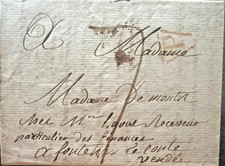 A Madame
Madame de
chez Mr Laval Receveur
particulier des finances
a fontenay le Comte
Vendée